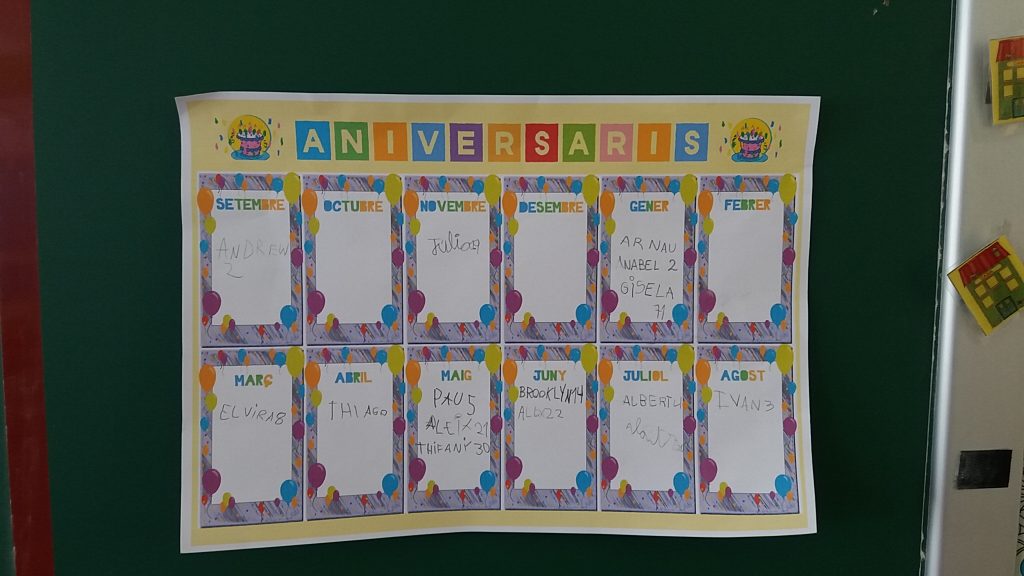 ANIVERSARIS
SETEMBRE
ANDREW
2
OCTUBRE
NOVEMBRE
DESEMBRE
GENER
ARNAU
2
GISELA
FEBRER
MARÇ
ELVIRA8
ABRIL
THIAGO
MAIG
PAU 5
ALEIX 21
THIFANY 30
JUNY
BROOKLYN14
JULIOL
AGOST
IVAN3